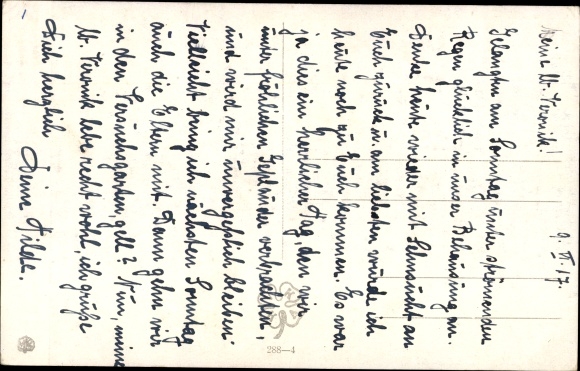 9. VI. 17
Meine lb. Veronik!
Gelangten am Sonntag unter strömenden
Regen glücklich in unser Behausung an.
Denke heute wieder mit Sehnsucht an
Euch zurück u. am liebsten würde ich
heute noch zu Euch kommen. Es war
ja dies ein herrlicher Tag, den wir
unter fröhlichen Geplauder verbrachten,
und wird mir unvergeßlich bleiben.
Vielleicht bring ich nächsten Sonntag
auch die Eltern mit. Dann gehn wir
in den Versuchsgarten, gell? Nun, meine
lb. Veronik lebe recht wohl, ich grüße
Dich herzlich
Deine Hilde.
288—4